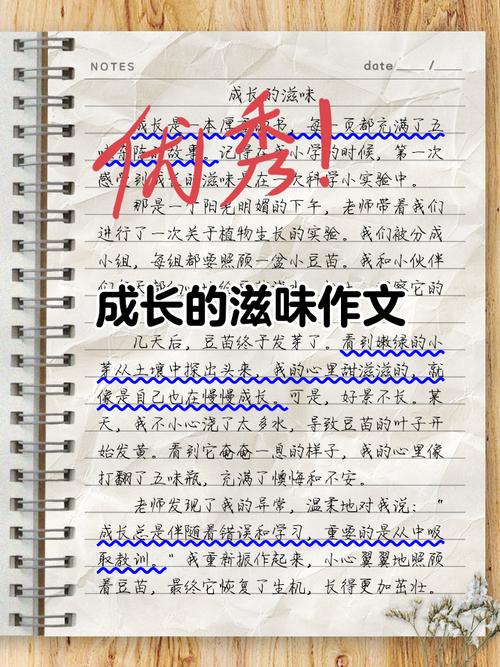 NOTES
date ___ / ___
成长的滋味
成长是一本厚重的书，每一页都充满了五
味杂陈的故事。记得在小学的时候，第一次
感受到成长的滋味是在一次科学小实验中。
优秀!
那是一个阳光明媚的下午，老师带着我们
进行了一次关于植物生长的实验。我们被分成
小组，每组都要照顾一盆小豆苗。我和小伙伴
们
察它的
成长的滋味作文
几天后，豆苗终于发芽了。看到嫩绿的小
芽从土壤中探出头来，我的心里甜滋滋的，就
像是自己也在慢慢成长。可是，好景不长。某
天，我不小心浇了太多水，导致豆苗的叶子开
始发黄。看到它奄奄一息的样子，我的心里像
打翻了五味瓶，充满了懊悔和不安。
老师发现了我的异常，温柔地对我说："
成长总是伴随着错误和学习，重要的是从中吸
取教训。"我重新振作起来，小心翼翼地照顾
着豆苗，最终它恢复了生机，长得更加茁壮。